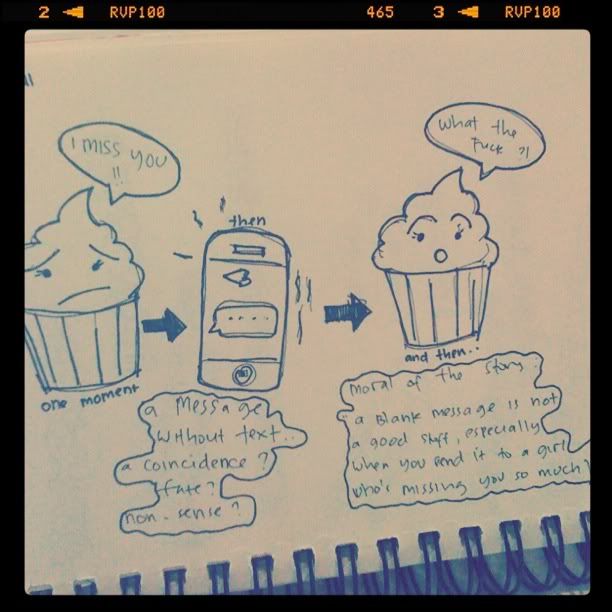 2 RVP100 465 3 RVP100
I miss you
!!
one moment
then
....
a message
without text..
a coincidence?
fate?
non-sense?
What the
Fuck ?!
and then..
moral of the story:
a Blank message is not
a good stuff, especially
when you send it to a girl
who's missing you so much!